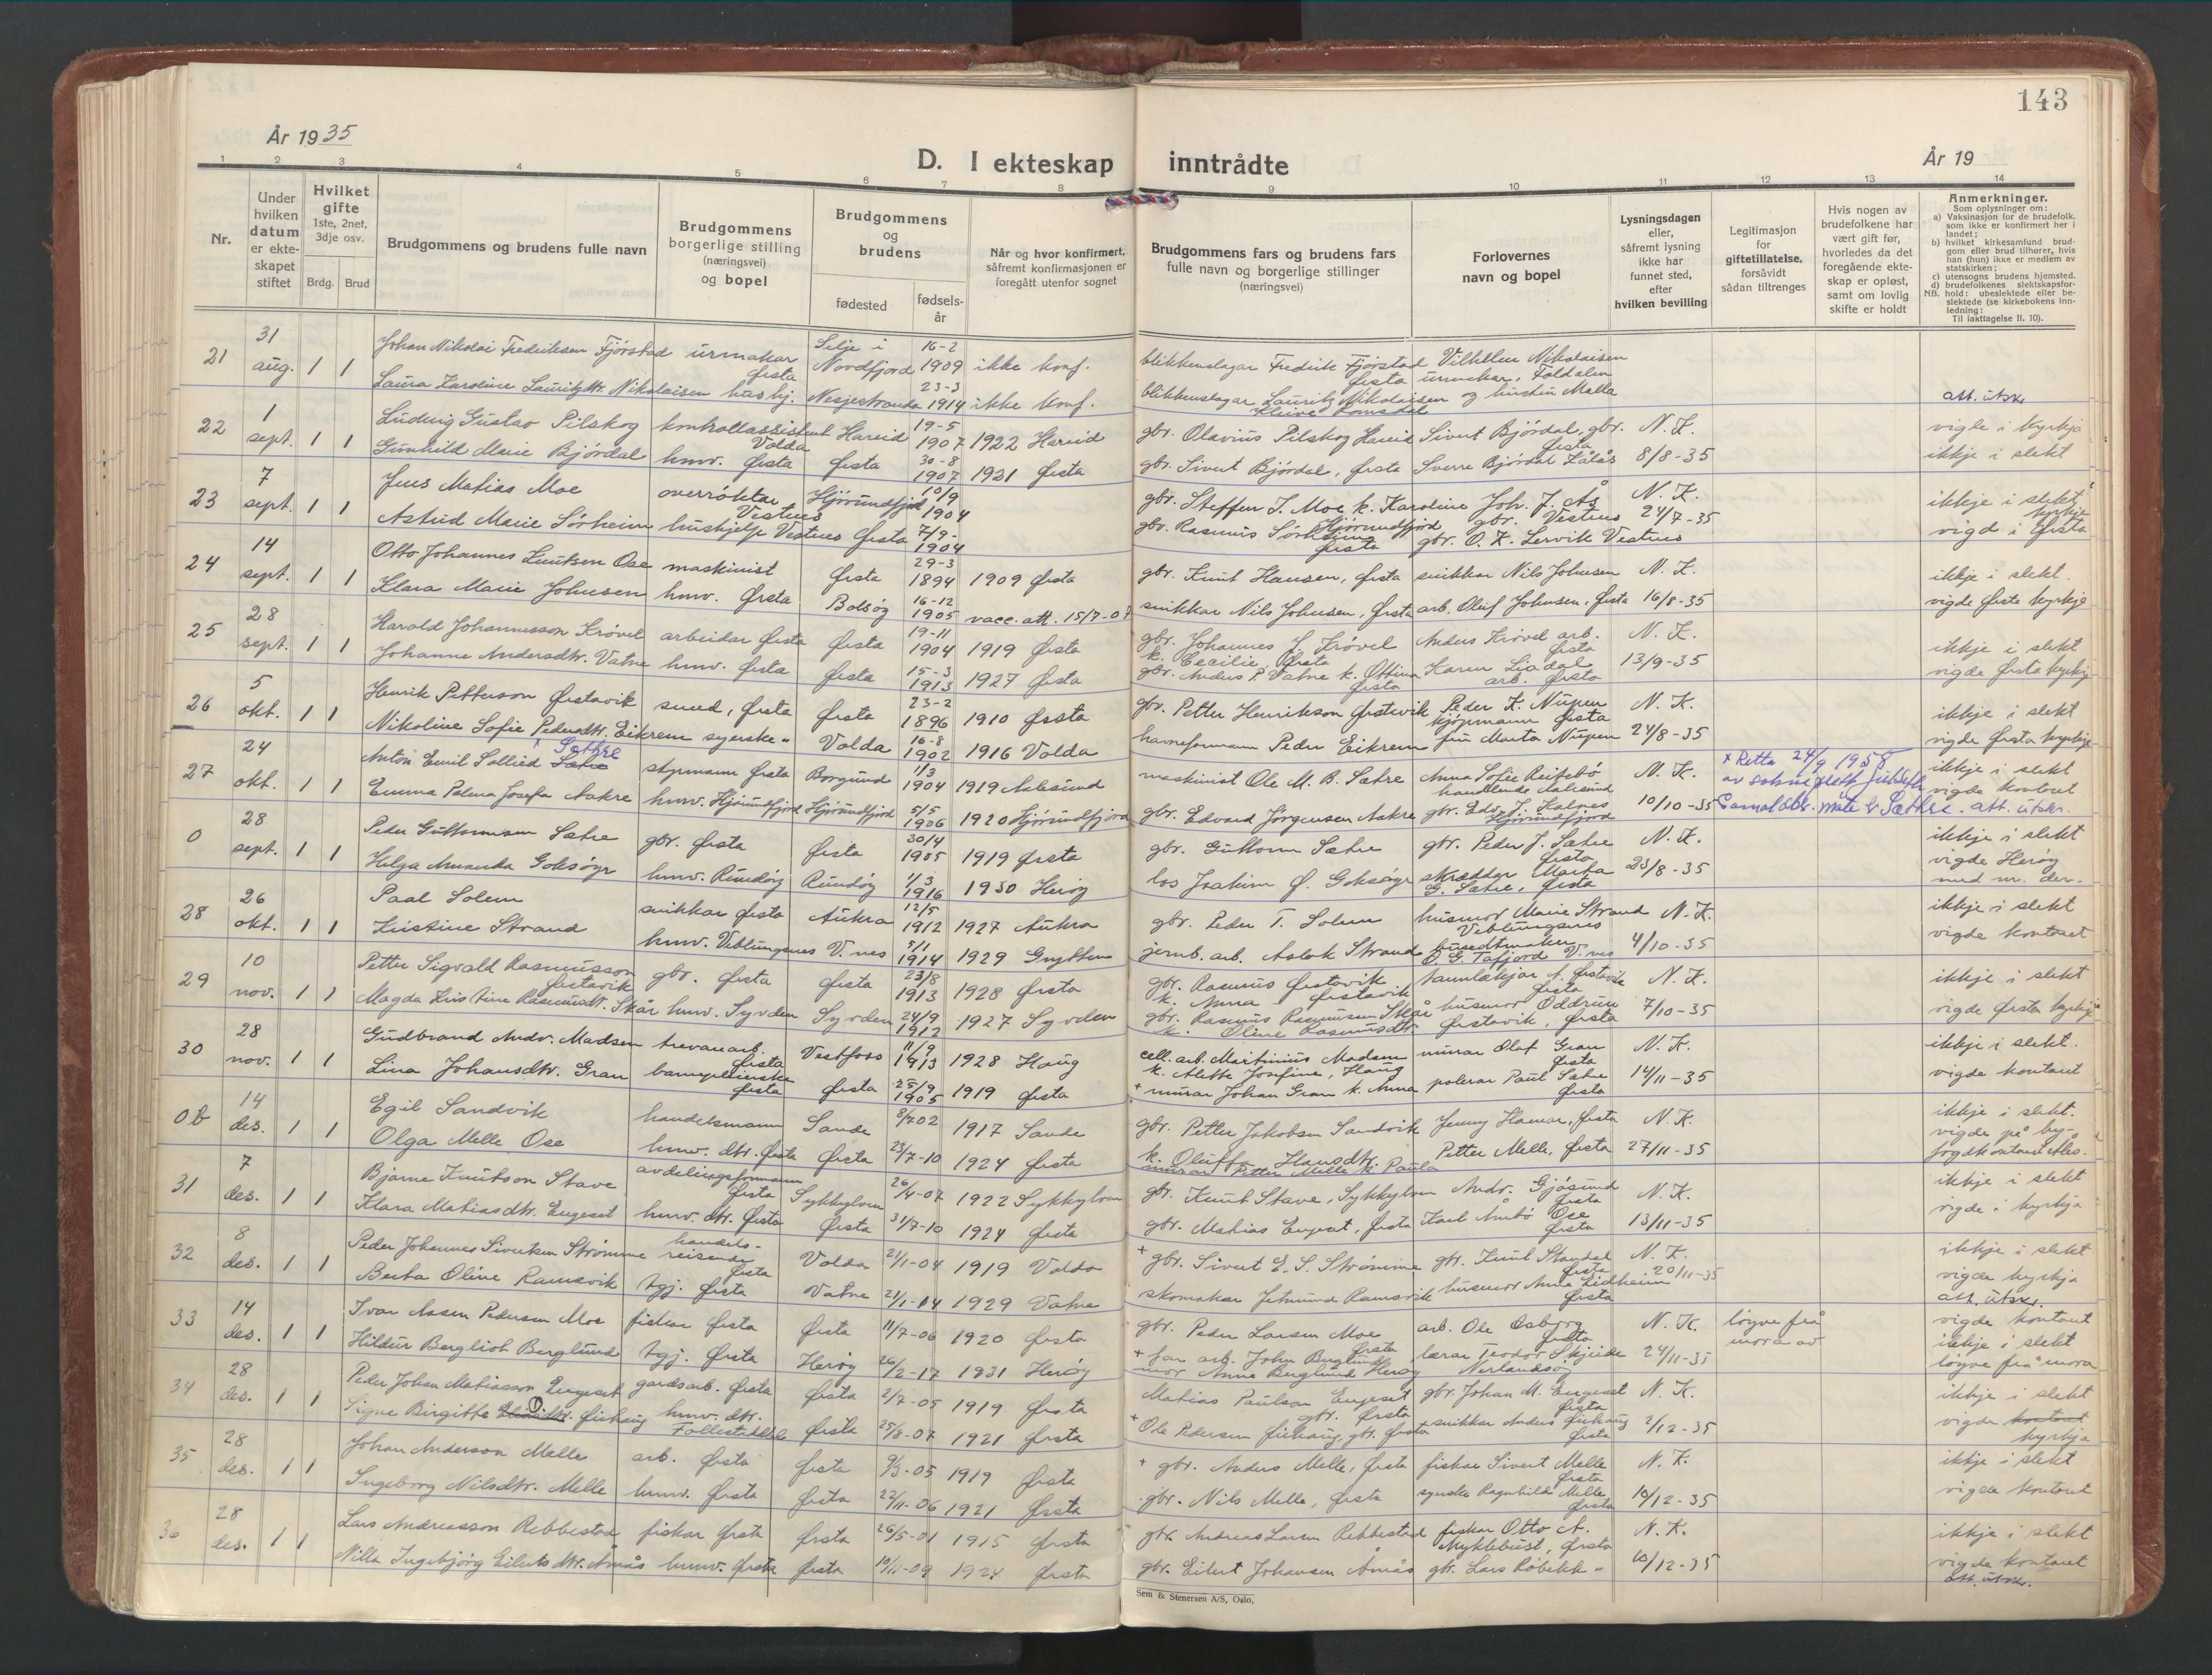 143
År 1935
D. I ekteskap inntrådte
År 19
1 2 3 4 5 6 7 8 9 10 11 12 13 14
Nr.
Under hvilken datum er ekteskapet stiftet
Hvilket gifte 1ste, 2net, 3dje osv.
Brdg. Brud
Brudgommens og brudens fulle navn
Brudgommens borgerlige stilling (næringsvei) og bopel
Brudgommens og brudens
fødested
fødsels-år
Når og hvor konfirmert, såfremt konfirmasjonen er foregått utenfor sognet
Brudgommens fars og brudens fars fulle navn og borgerlige stillinger (næringsvei)
Forlovernes navn og bopel
Lysningsdagen eller, såfremt lysning ikke har funnet sted, efter hvilken bevilling
Legitimasjon for giftetillatelse, forsåvidt sådan tiltrenges
Hvis nogen av brudefolkene har vært gift før, hvorledes da det foregående ekteskap er opløst, samt om lovlig skifte er holdt
Anmerkninger.
Som oplysninger om:
a) Vaksinasjon for de brudefolk, som ikke er konfirmert her i landet;
b) hvilket kirkesamfund brudgom eller brud tilhører, hvis han (hun) ikke er medlem av statskirken;
c) utensogns brudens hjemsted.
d) brudefolkenes slektskapsforhold: ubeslektede eller beslektede (se kirkebokens innledning:
NB. Til iakttagelse II. 10).
21 31 aug. 1 1 Johan Nikolai Fredriksen Fjørstad urmakar Ørsta Selje i Nordfjord 16-2 1909 ikke konf. blikkenslagar Fredrik Fjørstad Ørsta Vilhelm Nikolaisen urmakar, Foldalen
Laura Karoline Lauritzdtr. Nikolaisen hushj. Nesjestranda 23-3 1914 ikke konf. blikkenslagar Lauritz Nikolaisen og hustru Malla Kleive Romsdal att. utskr.
22 1 sept. 1 1 Ludvig Gustav Pilskog kontrollassistent Volda Hareid 19-5 1907 1922 Hareid gbr. Olavius Pilskog Hareid Sivert Bjørdal, gbr. Ørsta N. K. vigde i kyrkja
Gunhild Marie Bjørdal hmv. Ørsta Ørsta 30-8 1907 1921 Ørsta gbr. Sivert Bjørdal, Ørsta Sverre Bjørdal 8/8-35 ikkje i slekt
23 7 sept. 1 1 Jens Matias Moe overrøktar Vestnes Hjørundfjord 10/9 1904 gbr. Steffen J. Moe k. Karoline Hjørundfjord Joh. J. Ås gbr. Vestnes N. K. 24/7-35 ikkje i slekt
Astrid Marie Sørheim hushjelp Vestnes Ørsta 7/9- 1904 gbr. Rasmus Sørheim Ørsta gbr. O. K. Lervik Vestnes vigd i Ørsta kyrkje
24 14 sept. 1 1 Otto Johannes Knutsen Ose maskinist Ørsta 29-3 1894 1909 Ørsta gbr. Knut Hansen, Ørsta snikkar Nils Johnsen N. K. ikkje i slekt.
Klara Marie Johnsen hmv. Ørsta Bolsøy 16-12 1905 vacc. att. 15/7-07 snikkar Nils Johnsen, Ørsta arb. Oluf Johnsen, Ørsta 16/8-35 vigde Ørsta kyrkje
25 28 sept. 1 1 Harald Johannesson Krøvel arbeidar Ørsta Ørsta 19-11 1904 1919 Ørsta gbr. Johannes J. Krøvel k. Cecilie, Ørsta Anders Krøvel arb. Ørsta N. K. ikkje i slekt
Johanne Andersdtr. Vatne hmv. Ørsta Ørsta 15-3 1913 1927 Ørsta gbr. Anders P. Vatne k. Ottina Ørsta Karen Liadal arb. Ørsta 13/9-35 vigde Ørsta kyrkje
26 5 okt. 1 1 Henrik Petterson Ørstavik smed, Ørsta Ørsta 23-2 1896 1910 Ørsta gbr. Petter Henrikson Ørstavik Peder K. Nupen kjøpmann Ørsta N. K. ikkje i slekt
Nikoline Sofie Pedersdtr. Eikrem syerske " Volda 16-8 1902 1916 Volda havneformann Peder Eikrem fru Marta Nupen 24/8-35 vigde Ørsta kyrkje
27 24 okt. 1 1 Anton Emil Sollied Sætre Sæthre styrmann Ørsta Borgund 1/3 1904 1919 Aalesund maskinist Ole M. B. Sætre Anna Sofie Reitebø handlende Aalesund N. K. x Retta 24/9 1958 av sokneprest ikkje i slekt vigde kontoret
Emma Palma Josefa Aakre hmv. Hjørundfjord Hjørundfjord 5/5 1906 1920 Hjørundfjord gbr. Edvard Jørgensen Aakre gbr. Edv. J. Kalnes Hjørundfjord 10/10-35 Sæthre. att. utskr.
0 28 sept. 1 1 Peder Guttormsen Sætre gbr. Ørsta Ørsta 30/4 1905 1919 Ørsta gbr. Guttorm Sætre gbr. Peder J. Sætre Ørsta N. K. ikkje i slekt
Helga Amanda Goksøyr hmv. Rundøy Rundøy 1/3 1916 1930 Herøy los Joakim Ø. Goksøyr skrædder Marta G. Sætre, Ørsta 23/8-35 vigde Herøy med nr. der.
28 26 okt. 1 1 Paal Solem snikkar Ørsta Aukra 12/5 1912 1927 Aukra gbr. Peder T. Solem husmor Marie Strand Veblungsnes N. K. ikkje i slekt
Kristine Strand hmv. Veblungsnes V. nes 5/1 1914 1929 Grytten jernb. arb. Aslak Strand O. G. Tafjord V. nes 4/10-35 vigde kontoret
29 10 nov. 1 1 Petter Sigvald Rasmusson Ørstavik gbr. Ørsta Ørsta 23/8 1913 1928 Ørsta gbr. Rasmus Ørstavik k. Anna Ørstavik A. Ørstavik Ørsta N. K. ikkje i slekt
Magda Kristine Rasmusdt. Skår hmv. Syvden Syvden 24/9 1912 1927 Syvden gbr. Rasmus Rasmussen Skår k. Oline Rasmusdtr. husmor Oddrun Ørstavik, Ørsta 7/10-35 vigde Ørsta kyrkje
30 28 nov. 1 1 Gudbrand Andr. Madsen trevarearb. Ørsta Vestfoss 11/9 1913 1928 Haug cell. arb. Martinius Madsen k. Alette Josefine, Haug murar Olaf Gran Ørsta N. K. ikkje i slekt.
Lina Johansdtr. Gran barnepleierske Ørsta Ørsta 25/9 1905 1919 Ørsta + murar Johan Gran k. Anna polerar Paul Sætre Ørsta 14/11-35 vigde kontoret
0b 14 des. 1 1 Egil Sandvik handelsmann Sande 8/7 02 1917 Sande gbr. Petter Jakobsen Sandvik k. Oluffa Hansdtr. Jenny Hamar, Ørsta N. K. ikkje i slekt.
Olga Melle Ose hmv. dtr. Ørsta Ørsta 23/7-10 1924 Ørsta murar Petter Melle k. Paula Petter Melle, Ørsta 27/11-35 vigde på by-fogdkontoret Åles.
31 7 des. 1 1 Bjarne Knutson Stave avdelingsformann Ørsta Sykkylven 26/4-07 1922 Sykkylven gbr. Knut Stave, Sykkylven Andr. Gjøsund Ørsta N. K. ikkje i slekt
Klara Matiasdtr. Engeset hmv. dtr. Ørsta Ørsta 31/7-10 1924 Ørsta gbr. Matias Engeset, Ørsta Karl Aambø Ose Ørsta 13/11-35 vigde i kyrkja
32 8 des. 1 1 Peder Johannes Sivertsen Strømme handels-reisende Ørsta Volda 21/1-04 1919 Volda + gbr. Sivert E. S. Strømme gbr. Knut Standal Ørsta N. K. ikkje i slekt
Berta Oline Ramsvik tgj. Ørsta Vatne 21/1-14 1929 Vatne skomakar Jetmund Ramsvik husmor Anne Lidheim Ørsta 20/11-35 vigde kyrkja att. utskr.
33 14 des. 1 1 Ivar Aasen Pedersen Moe fiskar Ørsta Ørsta 11/7-06 1920 Ørsta gbr. Peder Larsen Moe Ørsta arb. Ole Osbjørg Ørsta N. K. løyve frå mora av vigde kontoret
Hildur Bergliot Berglund tgj. Ørsta Herøy 26/2-17 1931 Herøy + far arb. John Berglund mor Anne Berglund Herøy lærar Teodor Skjeide Nerlandsøy 24/11-35 ikkje i slekt løyve frå mora
34 28 des. 1 1 Peder Johan Matiasson Engeset gardsarb. Ørsta Ørsta 2/7-05 1919 Ørsta Matias Paulson Engeset gbr. Ørsta gbr. Johan M. Engeset Ørsta N. K. ikkje i slekt
Signe Birgitte O. hmv. dtr. Follestaddal Ørsta 25/8-07 1921 Ørsta + Ole Pedersen gbr. Ørsta snikkar Anders Ørsta 2/12-35 vigde kontoret kyrkja
35 28 des. 1 1 Johan Anderson Melle arb. Ørsta Ørsta 9/3-05 1919 Ørsta + gbr. Anders Melle, Ørsta fiskar Sivert Melle Ørsta N. K. ikkje i slekt
Ingeborg Nilsdtr. Melle hmv. Ørsta Ørsta 22/11-06 1921 Ørsta gbr. Nils Melle, Ørsta syerske Ragnhild Melle Ørsta 10/12-35 vigde kontoret
36 28 des. 1 1 Lars Andreasson Rebbestad fiskar Ørsta Ørsta 26/5-01 1915 Ørsta gbr. Andreas Larsen Rebbestad fiskar Otto A. Myklebust, Ørsta N. K. ikkje i slekt
Nilla Ingebjørg Eilertsdtr. Åmås hmv. Ørsta Ørsta 10/11-09 1924 Ørsta gbr. Eilert Johansen Åmås gbr. Lars Robekk " 10/12-35 vigde kontoret att. utskr.
Sem & Stenersen A/S, Oslo.